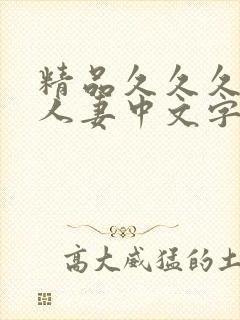 精品久久久
人妻中文字
高大威猛的土